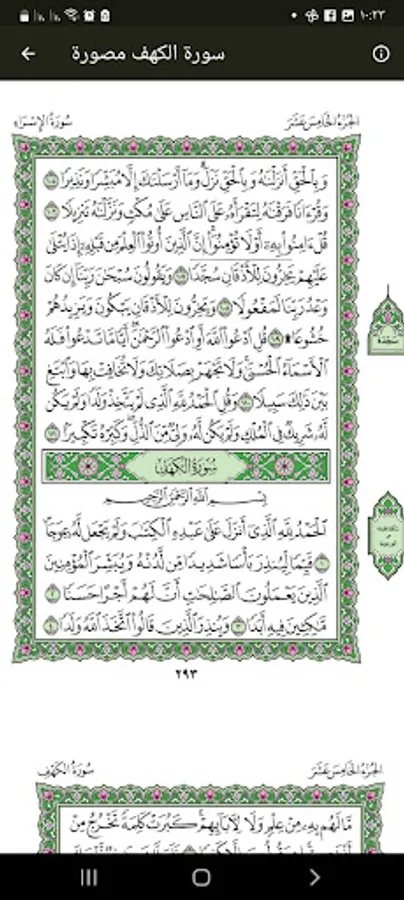 ١٠:٢٣
سورة الكهف مصورة
الجزء الخامس عشر
سورة الإسراء
وَبِالْحَقِّ أَنزَلْنَاهُ وَبِالْحَقِّ نَزَلَ وَمَا أَرْسَلْنَاكَ إِلَّا مُبَشِّرًا وَنَذِيرًا ١٠٥
وَقُرْءَانًا فَرَقْنَاهُ لِتَقْرَأَهُ عَلَى النَّاسِ عَلَىٰ مُكْثٍ وَنَزَّلْنَاهُ تَنزِيلًا ١٠٦
قُلْ ءَامِنُوا بِهِ أَوْ لَا تُؤْمِنُوا إِنَّ الَّذِينَ أُوتُوا الْعِلْمَ مِن قَبْلِهِ إِذَا يُتْلَىٰ
عَلَيْهِمْ يَخِرُّونَ لِلْأَذْقَانِ سُجَّدًا ١٠٧ وَيَقُولُونَ سُبْحَانَ رَبِّنَا إِن كَانَ
وَعْدُ رَبِّنَا لَمَفْعُولًا ١٠٨ وَيَخِرُّونَ لِلْأَذْقَانِ يَبْكُونَ وَيَزِيدُهُمْ
خُشُوعًا ۩ ١٠٩ قُلِ ادْعُوا اللَّهَ أَوِ ادْعُوا الرَّحْمَٰنَ أَيًّا مَّا تَدْعُوا فَلَهُ
الْأَسْمَاءُ الْحُسْنَىٰ وَلَا تَجْهَرْ بِصَلَاتِكَ وَلَا تُخَافِتْ بِهَا وَابْتَغِ
بَيْنَ ذَٰلِكَ سَبِيلًا ١١٠ وَقُلِ الْحَمْدُ لِلَّهِ الَّذِي لَمْ يَتَّخِذْ وَلَدًا وَلَمْ يَكُن
لَّهُ شَرِيكٌ فِي الْمُلْكِ وَلَمْ يَكُن لَّهُ وَلِيٌّ مِّنَ الذُّلِّ وَكَبِّرْهُ تَكْبِيرًا ١١١
سجدة
سورة الكهف
بِسْمِ اللَّهِ الرَّحْمَٰنِ الرَّحِيمِ
الْحَمْدُ لِلَّهِ الَّذِي أَنزَلَ عَلَىٰ عَبْدِهِ الْكِتَابَ وَلَمْ يَجْعَل لَّهُ عِوَجًا
١ قَيِّمًا لِّيُنذِرَ بَأْسًا شَدِيدًا مِّن لَّدُنْهُ وَيُبَشِّرَ الْمُؤْمِنِينَ
الَّذِينَ يَعْمَلُونَ الصَّالِحَاتِ أَنَّ لَهُمْ أَجْرًا حَسَنًا ٢
مَّاكِثِينَ فِيهِ أَبَدًا ٣ وَيُنذِرَ الَّذِينَ قَالُوا اتَّخَذَ اللَّهُ وَلَدًا ٤
٢٩٣
الجزء الخامس عشر
سورة الكهف
مَّا لَهُم بِهِ مِنْ عِلْمٍ وَلَا لِآبَائِهِمْ كَبُرَتْ كَلِمَةً تَخْرُجُ مِنْ